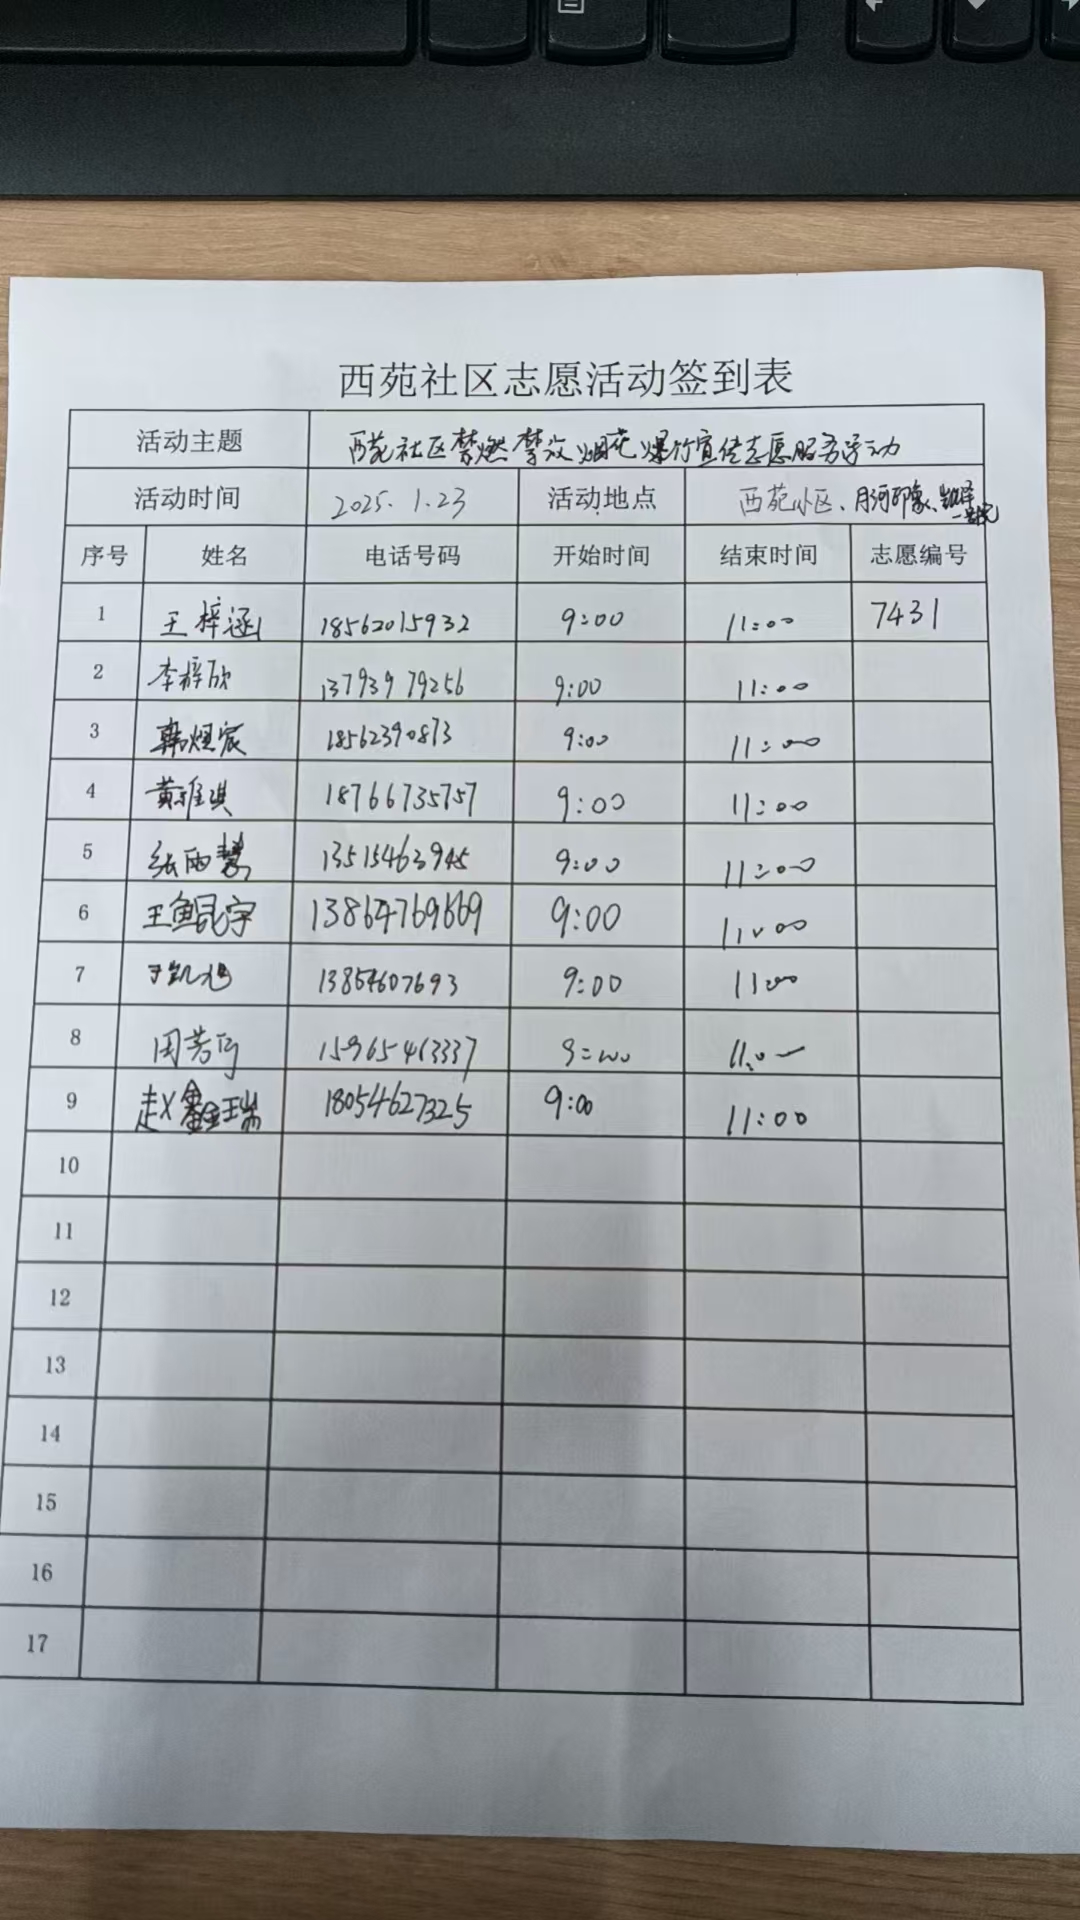 西苑社区志愿活动签到表
活动主题 西苑社区禁燃禁放烟花爆竹宣传志愿服务活动
活动时间 2025.1.23 活动地点 西苑小区、月河印象、
序号 姓名 电话号码 开始时间 结束时间 志愿编号
1 王梓涵 18562015932 9:00 11:00 7431
2 李梓欣 13793979256 9:00 11:00
3 韩煜宸 18562390873 9:00 11:00
4 黄雅琪 18766735757 9:00 11:00
5 张雨慧 13515463945 9:00 11:00
6 王鲲宇 13864769669 9:00 11:00
7 于凯旭 13854607693 9:00 11:00
8 周芳 15965413337 9:00 11:0
9 赵鑫瑞 18054627325 9:00 11:00
10
11
12
13
14
15
16
17